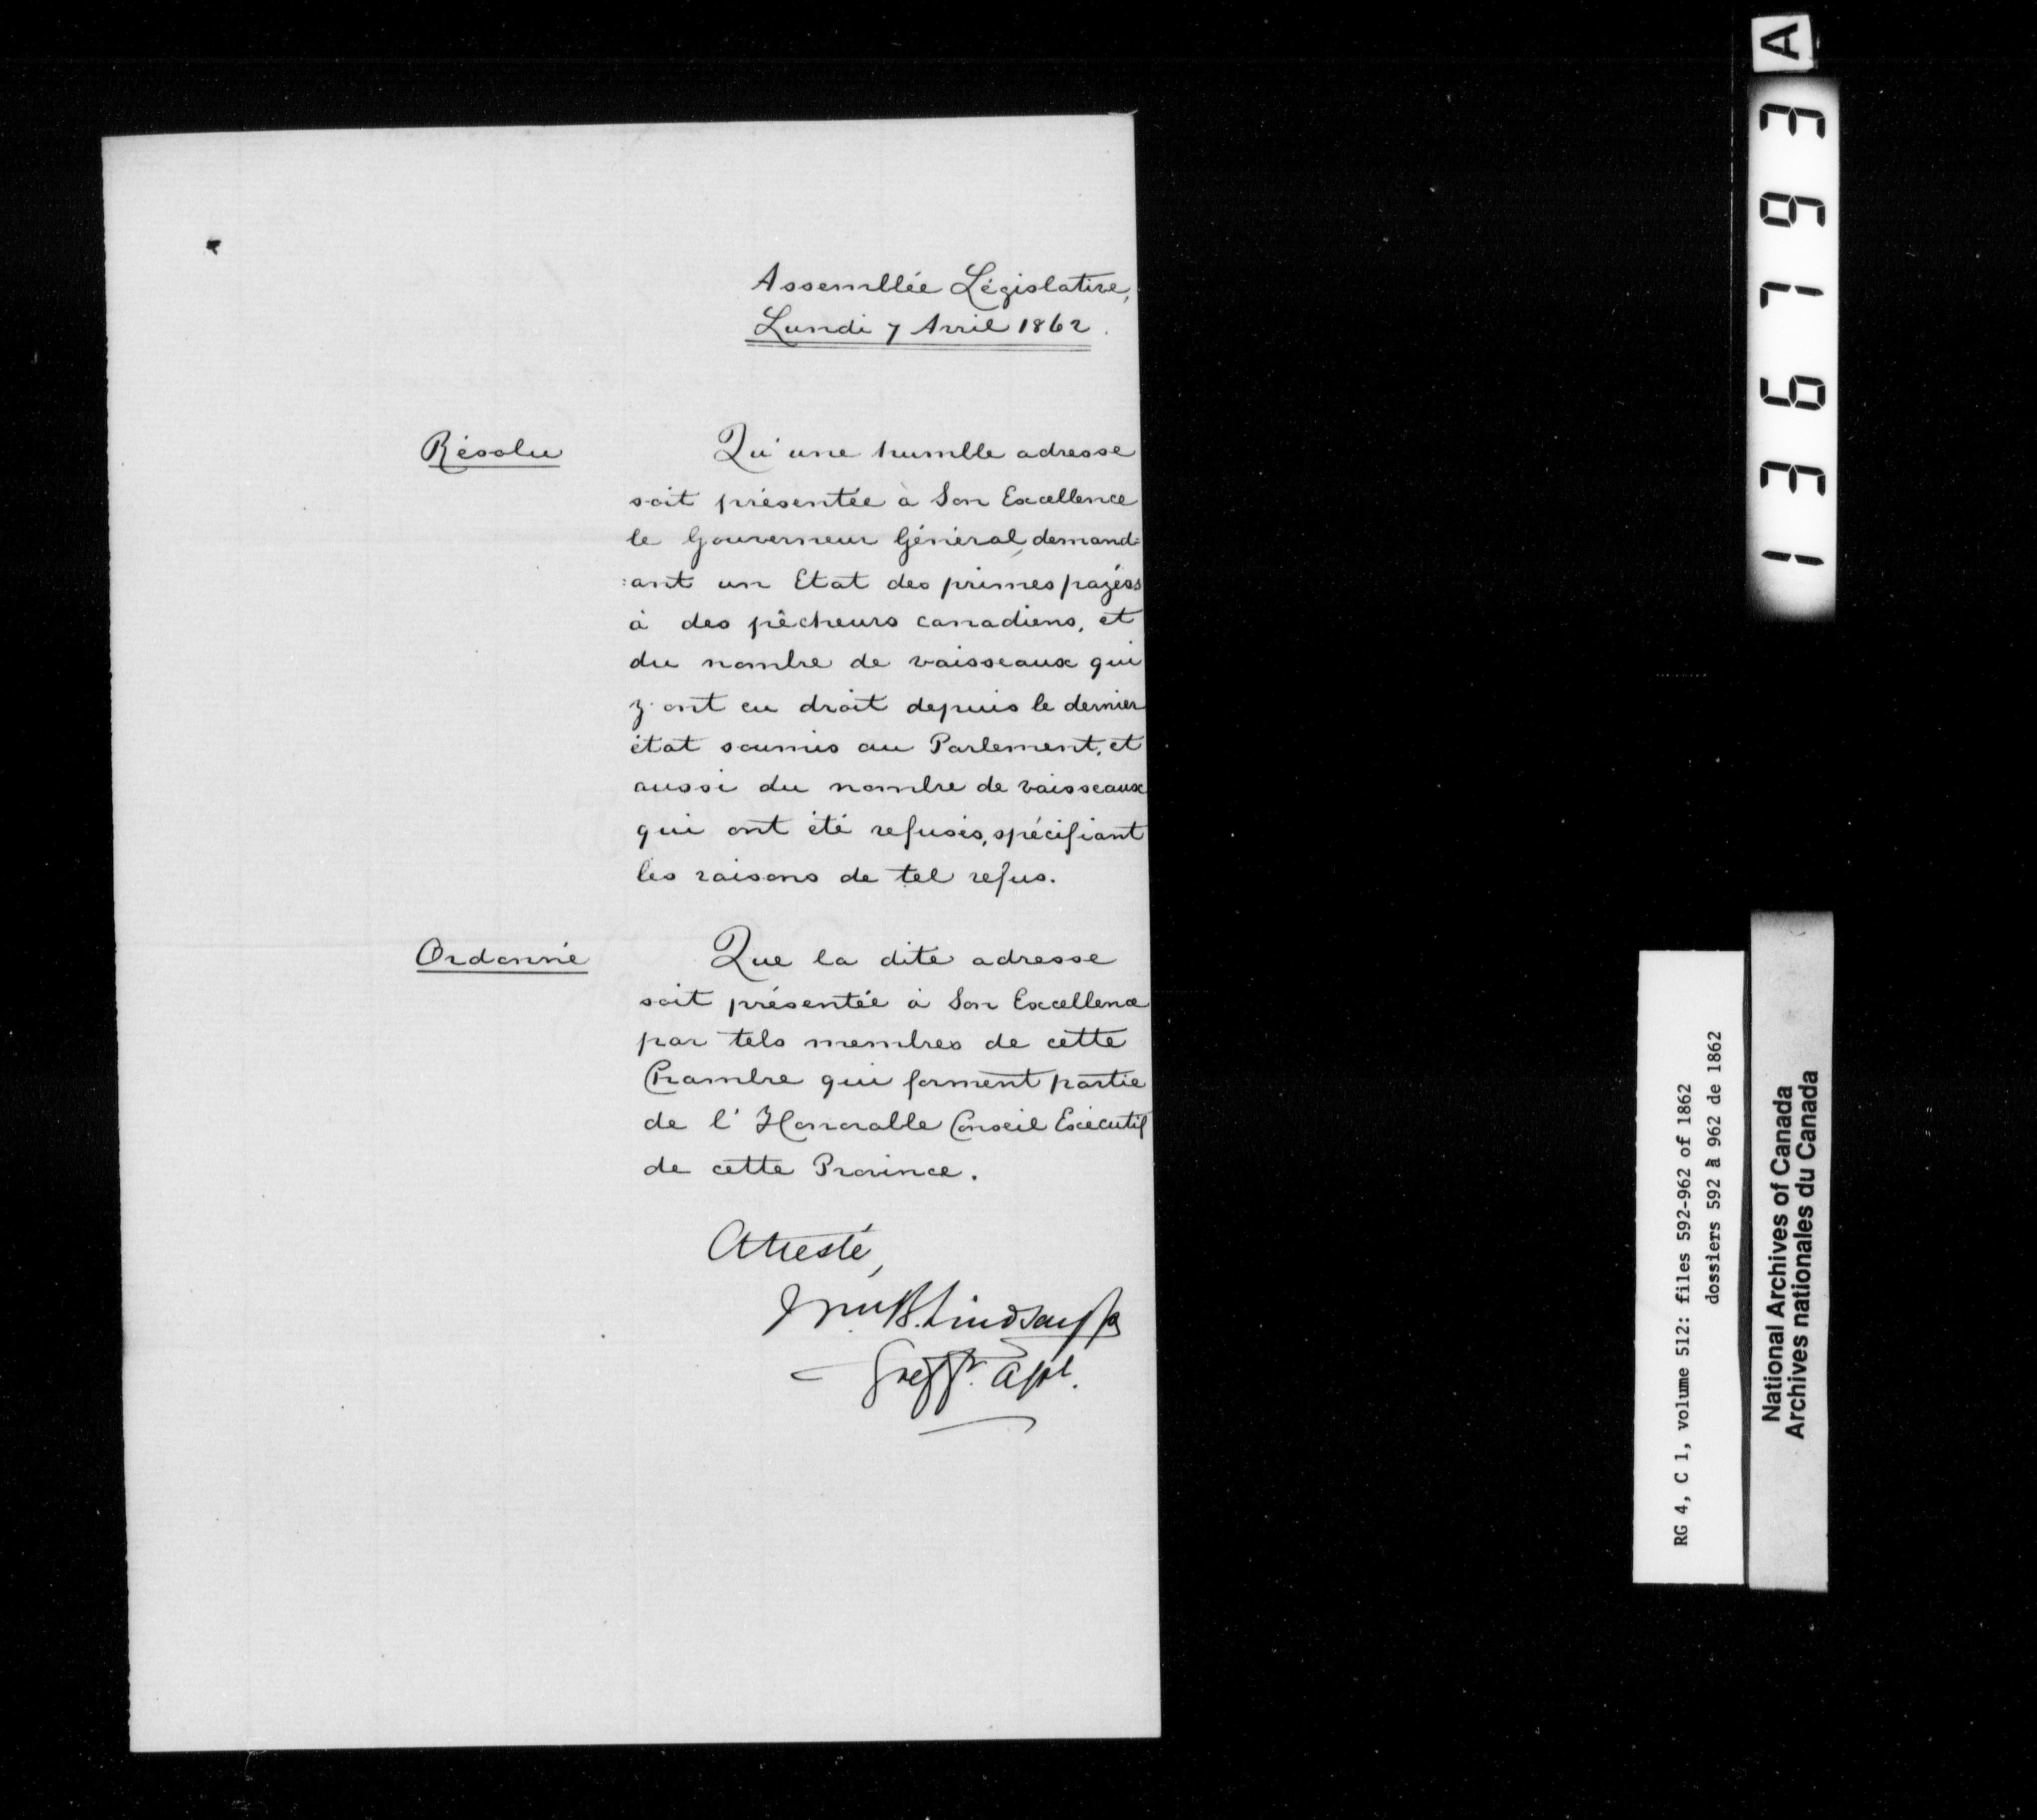 Assemblée Législative,
Lundi 7 Avril 1862.
Résolu Qu'une humble adresse
soit présentée à Son Excellence
le Gouverneur Général, demand=
=ant un Etat des primes payées
à des pêcheurs canadiens, et
du nombre de vaisseaux qui
y ont eu droit depuis le dernier
état soumis au Parlement, et
aussi du nombre de vaisseaux
qui ont été refusés, spécifiant
les raisons de tel refus.
Ordonné Que la dite adresse
soit présentée à Son Excellence
par tels membres de cette
Chambre qui forment partie
de l'Honorable Conseil Exécutif
de cette Province.
Attesté,
Wm B. Lindsay
Greffr. Asst.
136793 A
RG 4, C 1, volume 512: files 592-962 of 1862
dossiers 592 à 962 de 1862
National Archives of Canada
Archives nationales du Canada